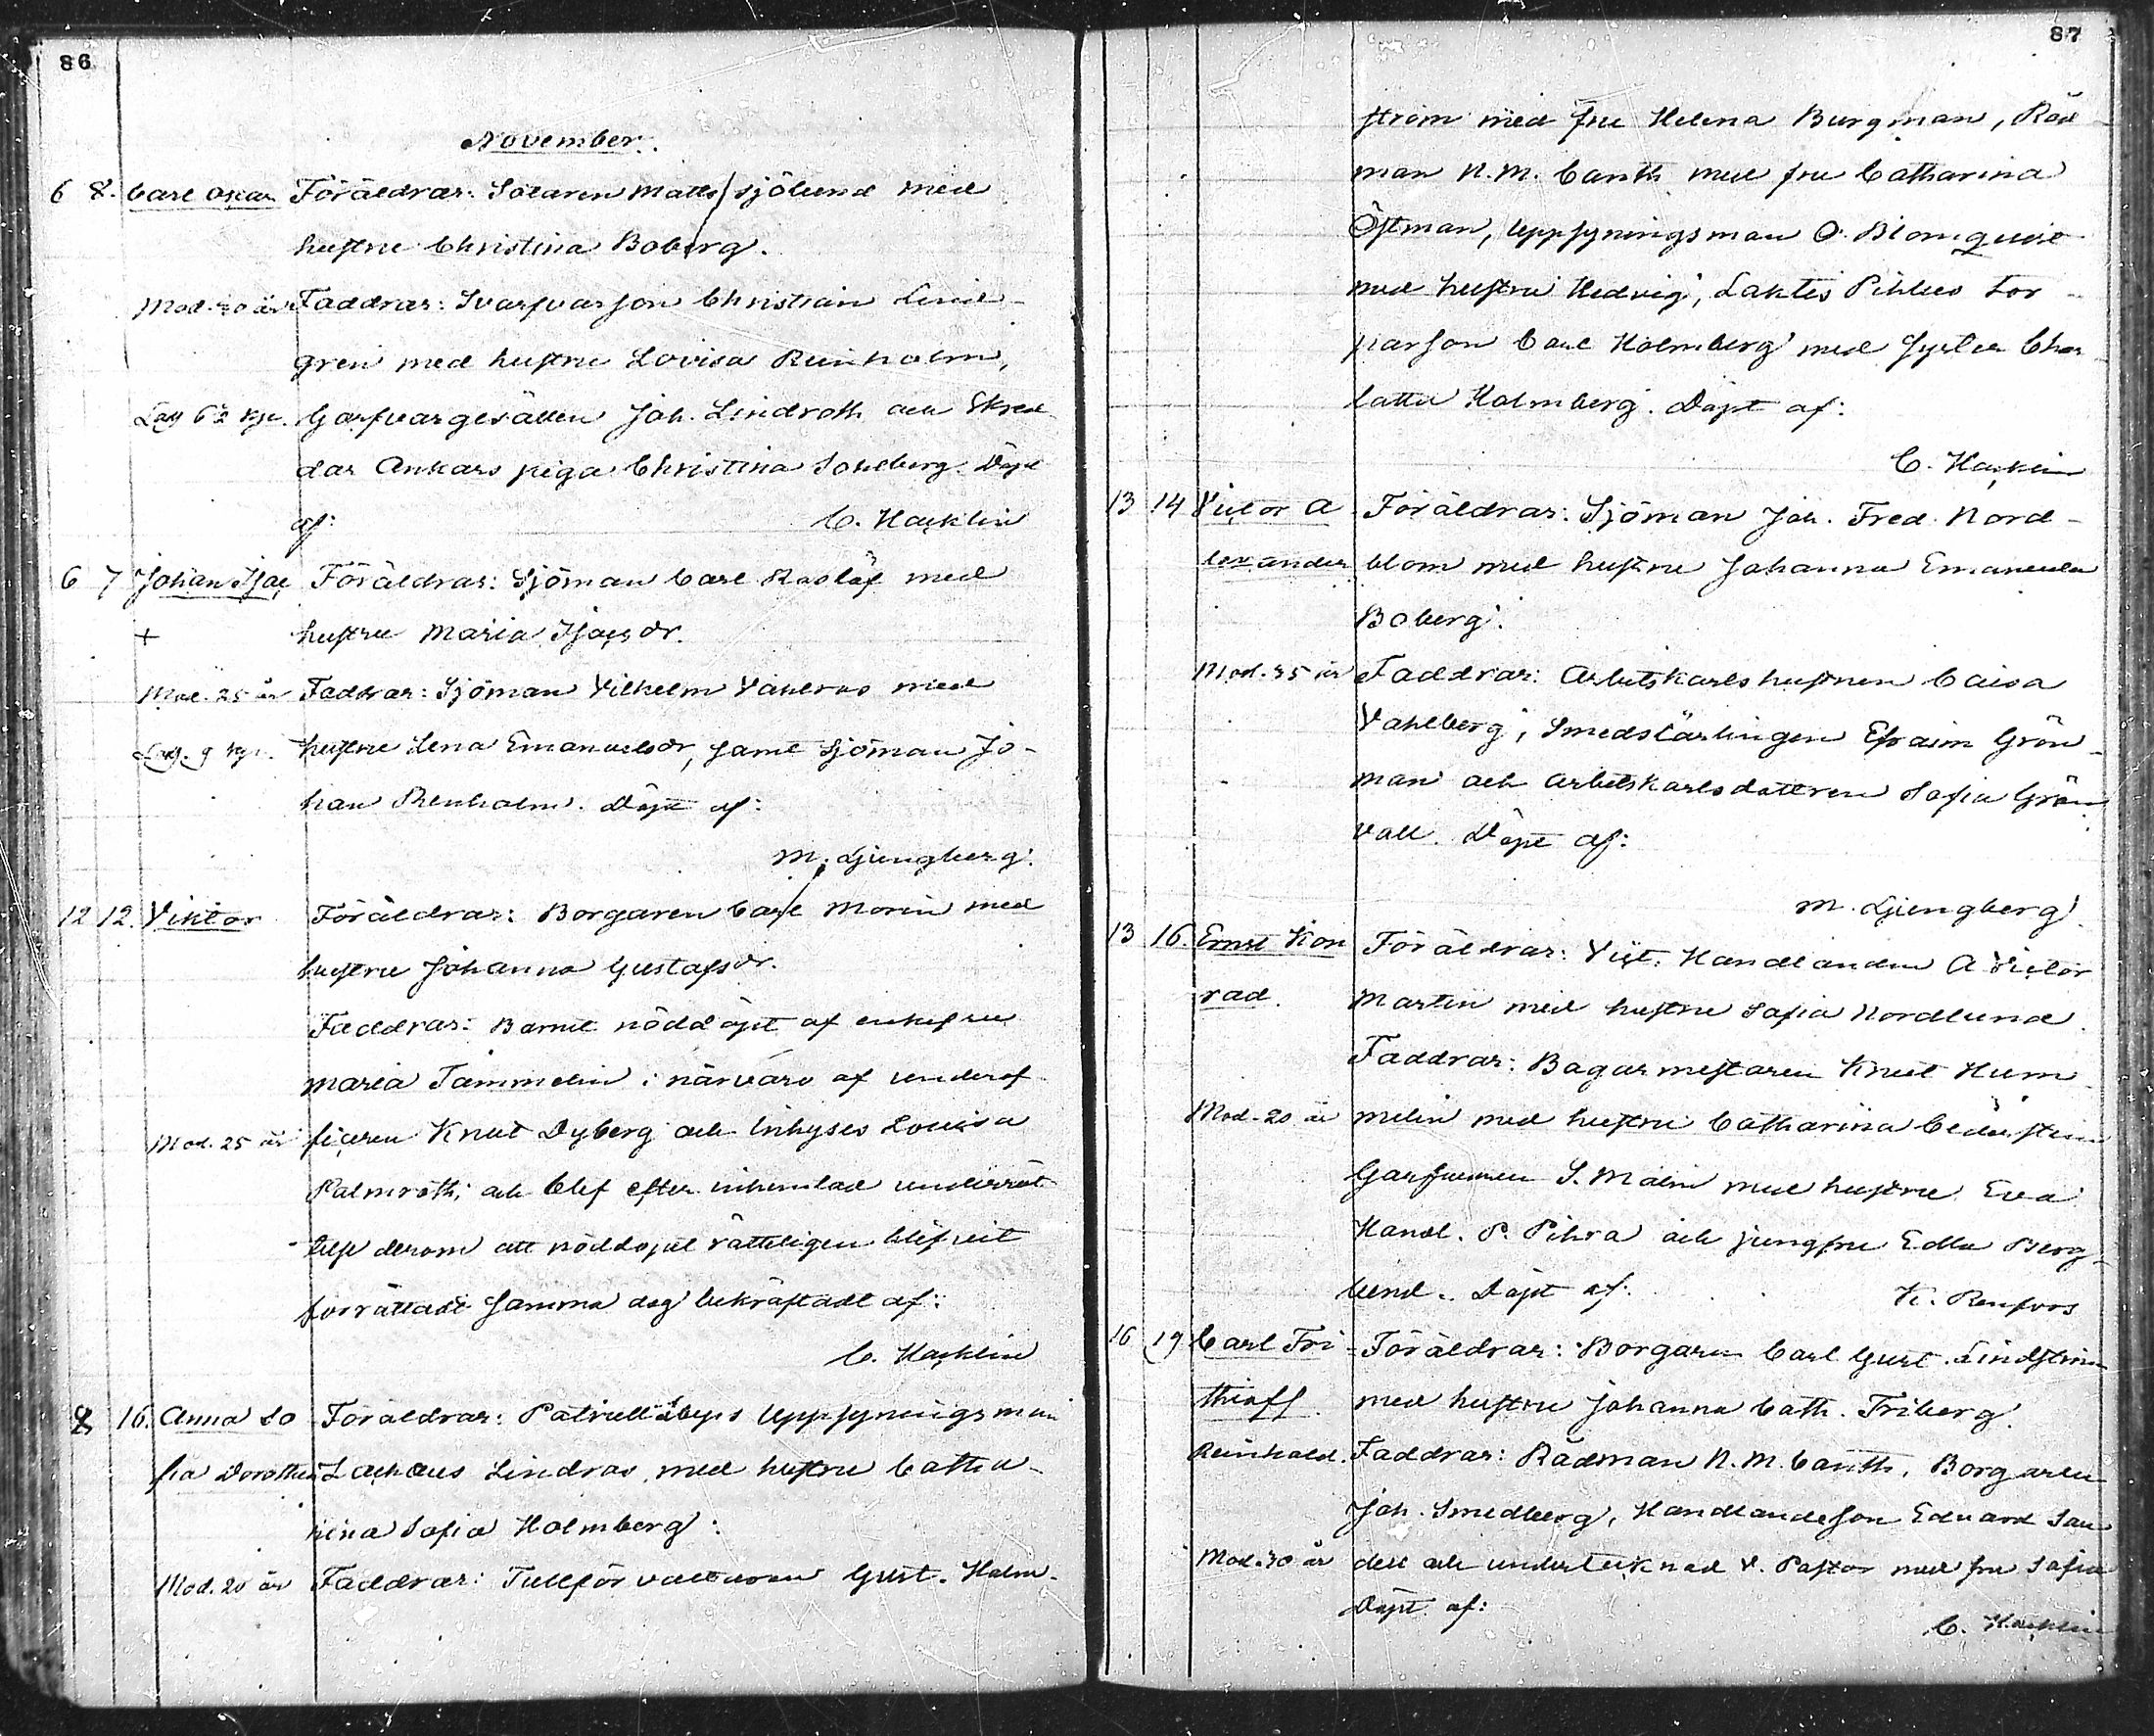 86
November.
6 8. Carl Oskar Föräldrar: Sotaren Matts Sjölund med
hustru Christina Boberg.
Mod. 30 år Faddrar: Svarfvarson Christian Lind-
gren med hustru Lovisa Reinholm,
Lag 6 2 kje. Garfvargesällen Joh. Lindroth och Skred-
dar Ankars piga Christina Sohlberg. Döpt
af: C. Hacklin
6 7 Johan Isac Föräldrar: Sjöman Carl Roslöf med
+ hustru Maria Isacsdr.
Mod. 25 år Faddrar: Sjöman Vilhelm Vahlroos med
Lag. 9 kje. hustru Lena Emanuelsdr, samt Sjöman Jo-
han Renholm. Döpt af:
M. Ljungberg.
12 12. Viktor Föräldrar: Borgaren Carl Morin med
hustru Johanna Gustafsdr.
Faddrar: Barnet nöddöpt af enkefru
Maria Tammelin i närvaro af underof-
Mod. 25 år ficeren Knut Dyberg och Inhyses Lovisa
Palmroth, och blef efter inhemtad underrät-
telse derom att nöddopet rätteligen blifvit
förrättadt samma dag bekräftadt af:
C. Hacklin
8 16. Anna So Föräldrar: Patrull Uppsyningsman
fia Dorothea Zachæus Lindroos med hustru Catha-
rina Sofia Holmberg:
Mod. 20 år Faddrar: Tullförvaltaren Gust. Holm-
87
ström med fru Helena Burgman, Råd
man N. M. Canth med fru Catharina
Östman, Uppsyningsman O. Blomquist
med hustru Hedvig, Laktis Pihlus tor-
parson Carl Holmberg med syster Char
lotta Holmberg. Döpt af:
C. Hacklin
13 14 Victor A Föräldrar: Sjöman Joh. Fred. Nord-
lexander blom med hustru Johanna Emanuela
Boberg.
Mod. 35 år Faddrar: Arbetskarlshustrun Caisa
Vahlberg, Smedslärlingen Efraim Grön-
man och arbetskarlsdottren Sofia Grön
vall. Döpt af:
M. Ljungberg.
13 16. Ernst Kon Föräldrar: Vict. Handlanden A Victor
rad. Martin med hustru Sofia Nordlund.
Faddrar: Bagarmestaren Knut Hum
Mod. 20 år melin med hustru Catharina Cederstein
Garfvaren S. Malm med hustru Eva
Handl. P. Pihra och jungfru Edla Berg-
lund. Döpt af: K. Renfors
16 19 Carl Fri Föräldrar: Borgaren Carl Gust. Lindström
thioff. med hustru Johanna Cath. Friberg.
Reinhold. Faddrar: Rådman N. M. Canth, Borgaren
Joh. Smedberg, Handlandeson Eduard San
Mod. 30 år dell och undertecknad V. Pastor med fru Sofia
Döpt af:
C. Hacklin